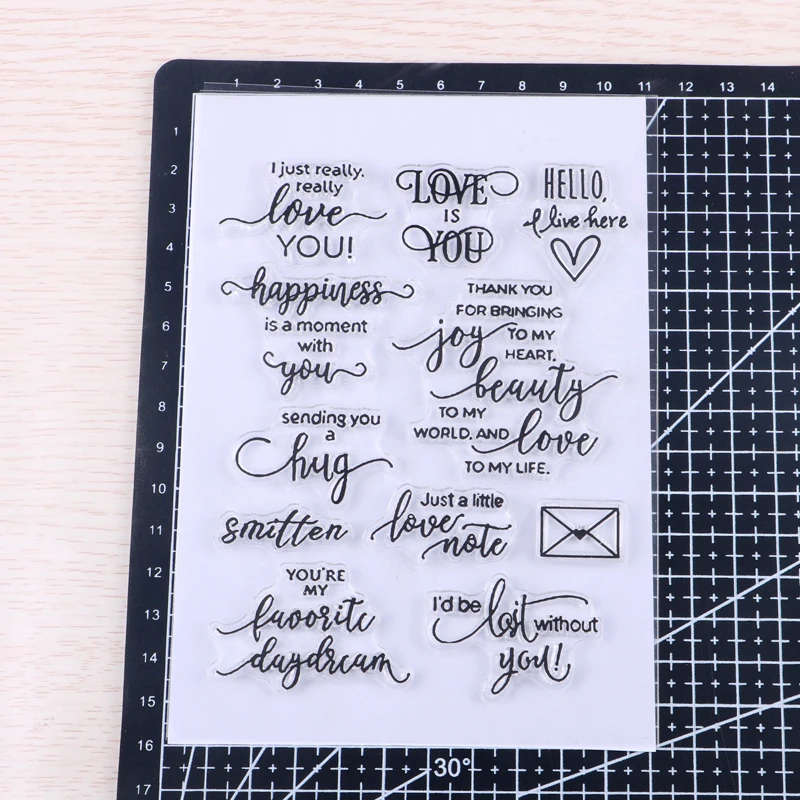 1 2 3 4 5 6 7 8 9 10 11 12 13 14
1
2
3
4
5
6
7
8
9
10
11
12
13
14
15
16
17
I just really,
really
love
YOU!
LOVE
IS
YOU
HELLO,
I live here
happiness
is a moment
with
you
THANK YOU
FOR BRINGING
joy TO MY
HEART,
beauty
TO MY
WORLD, AND love
TO MY LIFE.
sending you
a
hug
smitten
Just a little
love
note
YOU'RE
MY
favorite
daydream
I'd be lost without
you!
30°